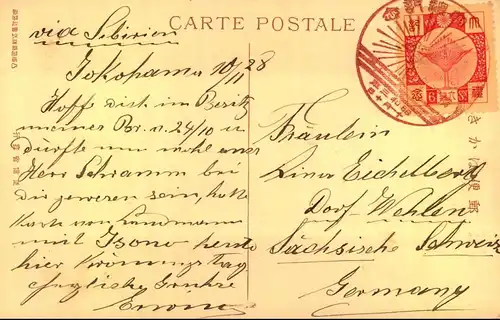 CARTE POSTALE
via Sibirien
Yokohama 10/11 28
Hoffe dich im Besitz
meiner Br. v. 24/10 u
dürfte nun wohl auch
Herr Schramm bei
dir gewesen sein, hatte
Karte von
mit Isono heute
hier Krönungstag
Herzliche Grüsse
Erwin
Fräulein
Lina Eichelberg
Dorf-Wehlen
Sächsische Schweiz
Germany
きかは便郵